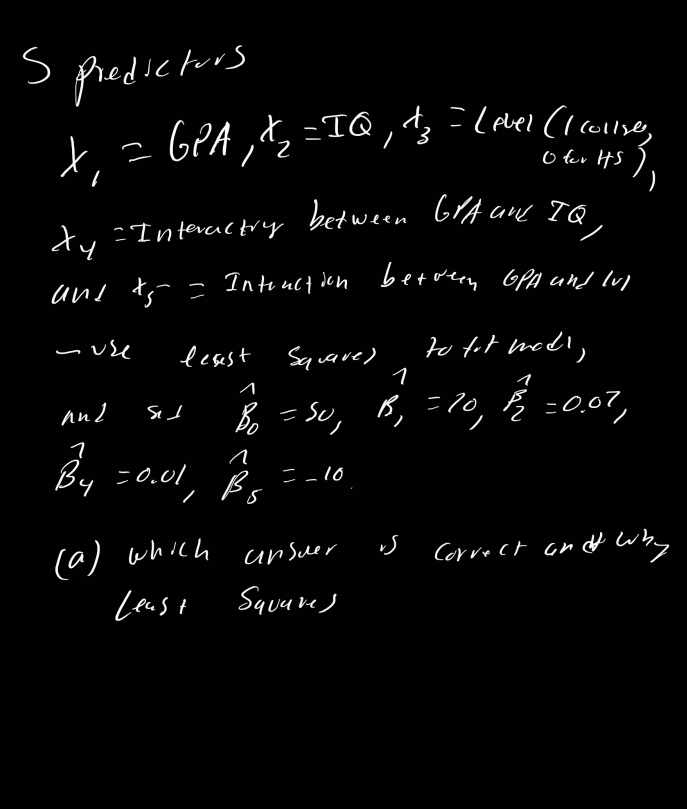 5 predictors
X₁ = GPA, X₂ = IQ, X₃ = Level (1 college,
0 for HS),
X₄ = Interaction between GPA and IQ,
and X₅ = Interaction between GPA and lvl
- use least squares to fit model,
and get β̂₀ = 50, β̂₁ = 20, β̂₂ = 0.07,
β̂₄ = 0.01, β̂₅ = -10.
(a) which answer is correct and why
Least Squares